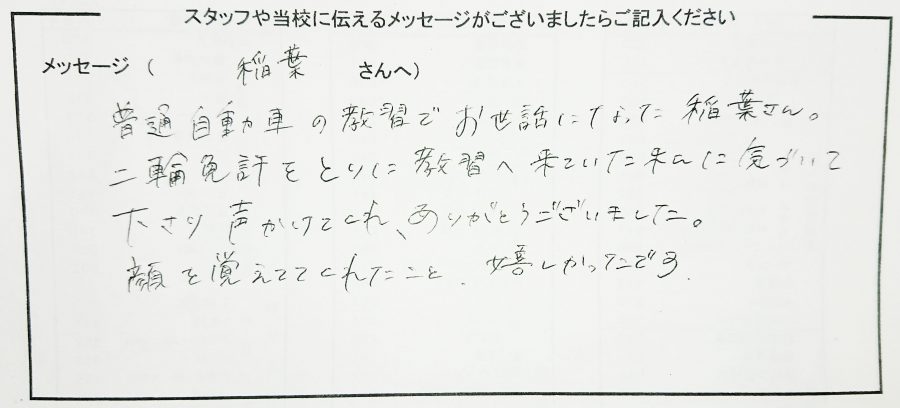 スタッフや当校に伝えるメッセージがございましたらご記入ください
メッセージ ( 稲葉 さんへ)
普通自動車の教習でお世話になった稲葉さん。
二輪免許をとりに教習へ来ていた私に気づいて
下さり声かけてくれ、ありがとうございました。
顔を覚えててくれたこと、嬉しかったです。